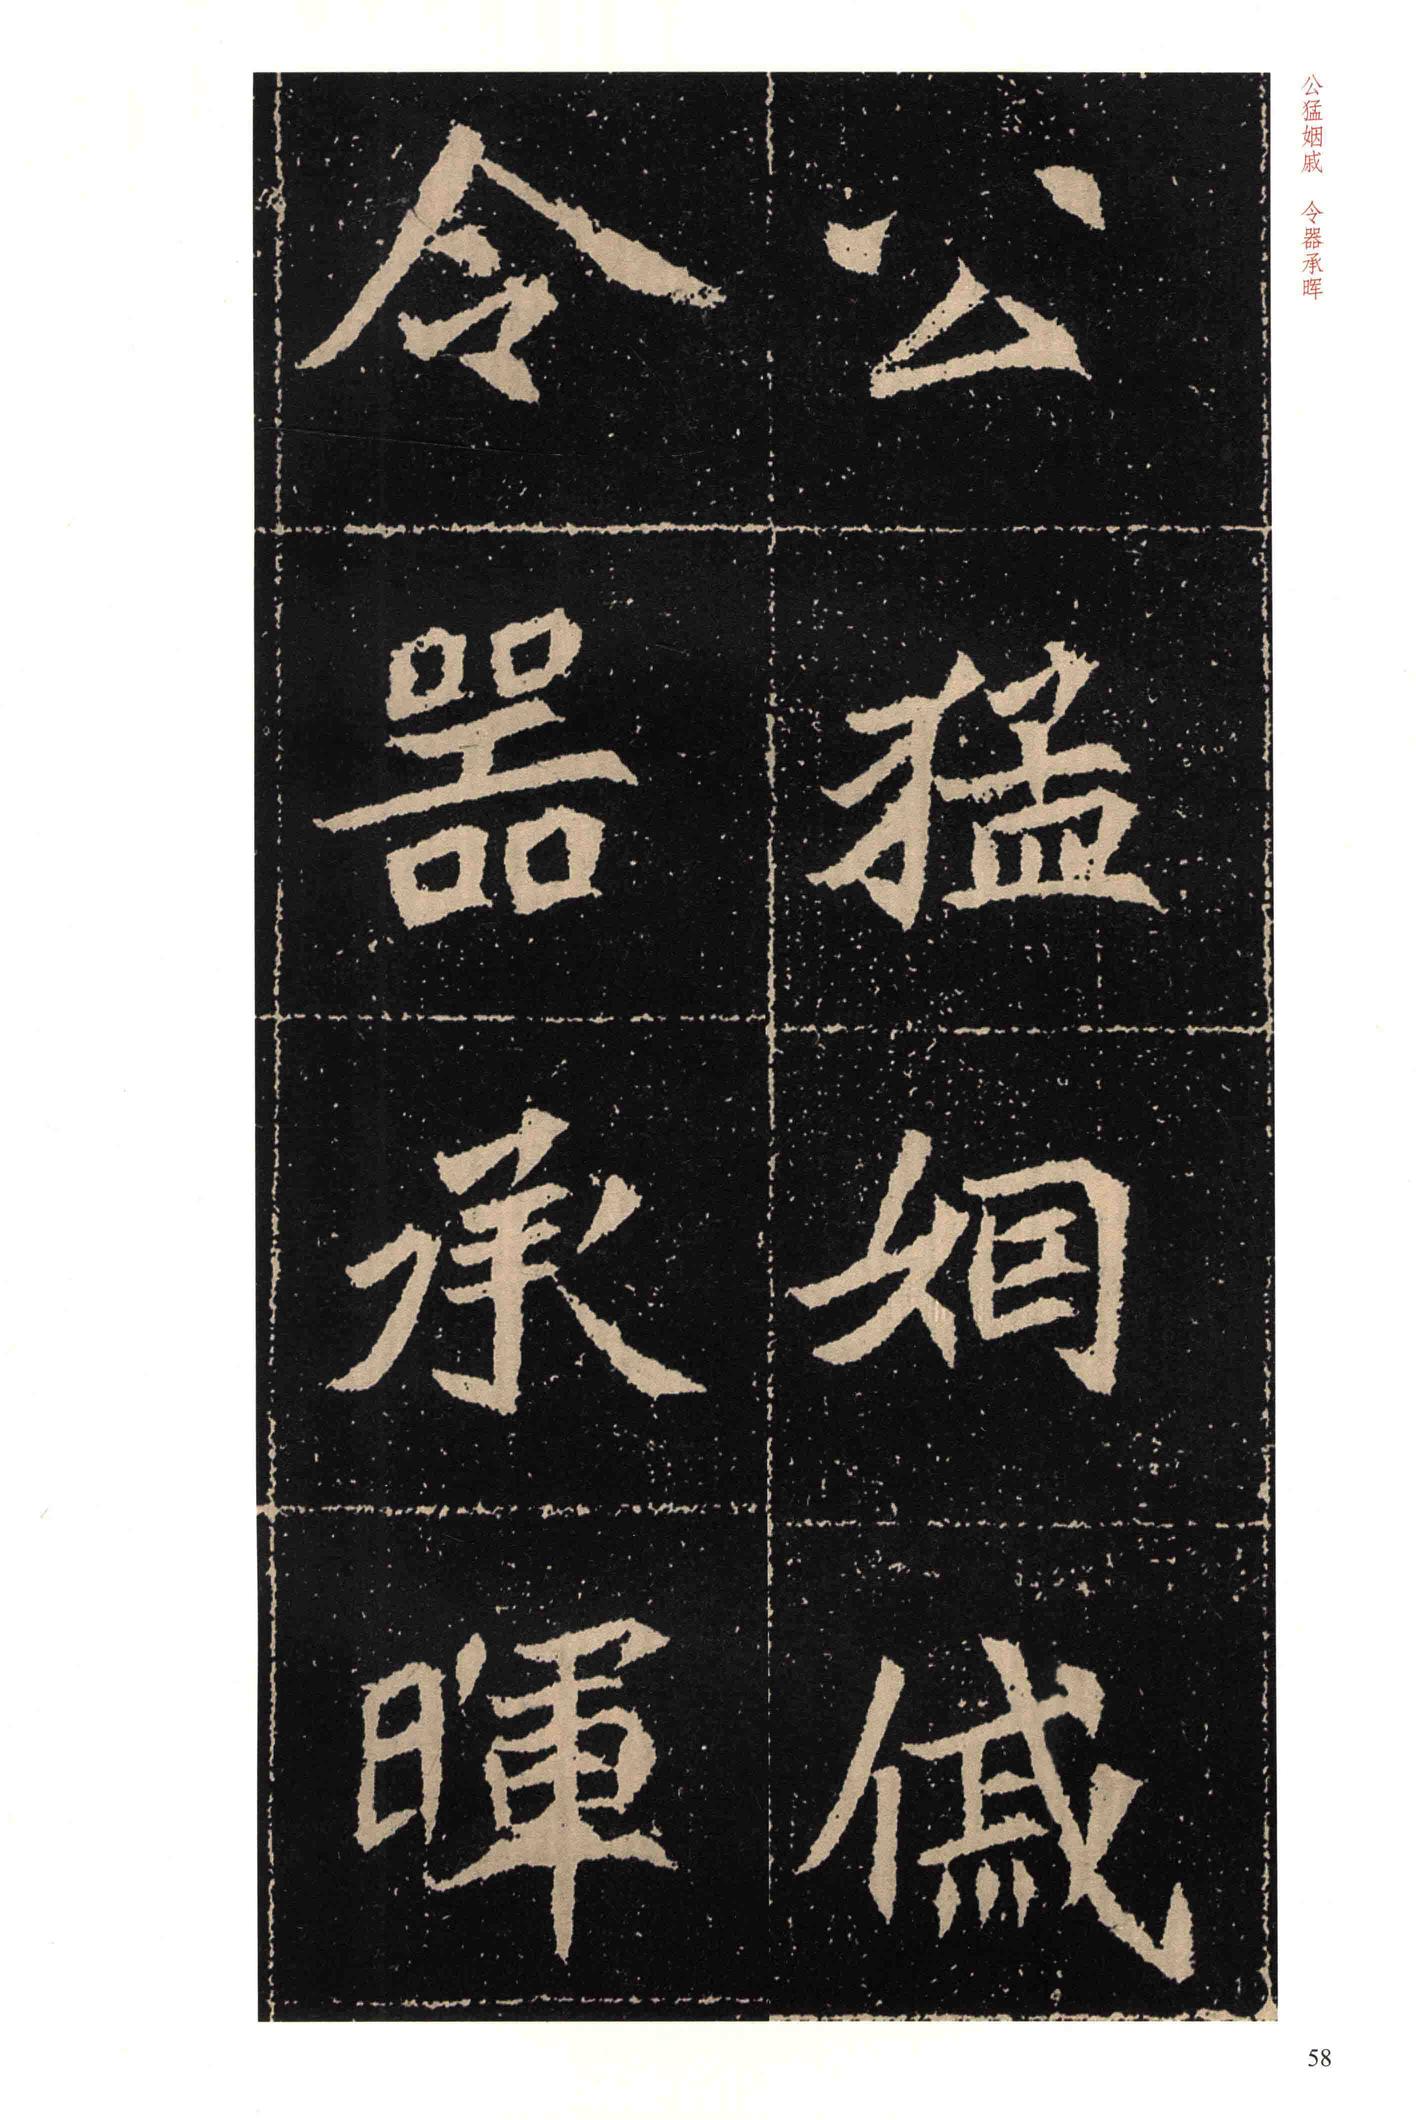 公猛姻戚
令器承暉
公猛姻戚 令器承晖
58